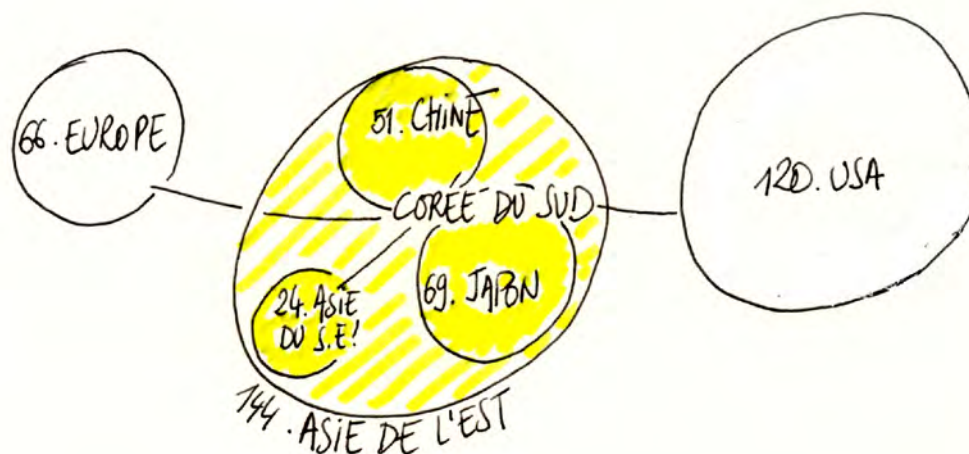 66. EUROPE
51. CHINE
120. USA
CORÉE DU SUD
24. ASIE
DU S.E!
69. JAPON
144. ASIE DE L'EST